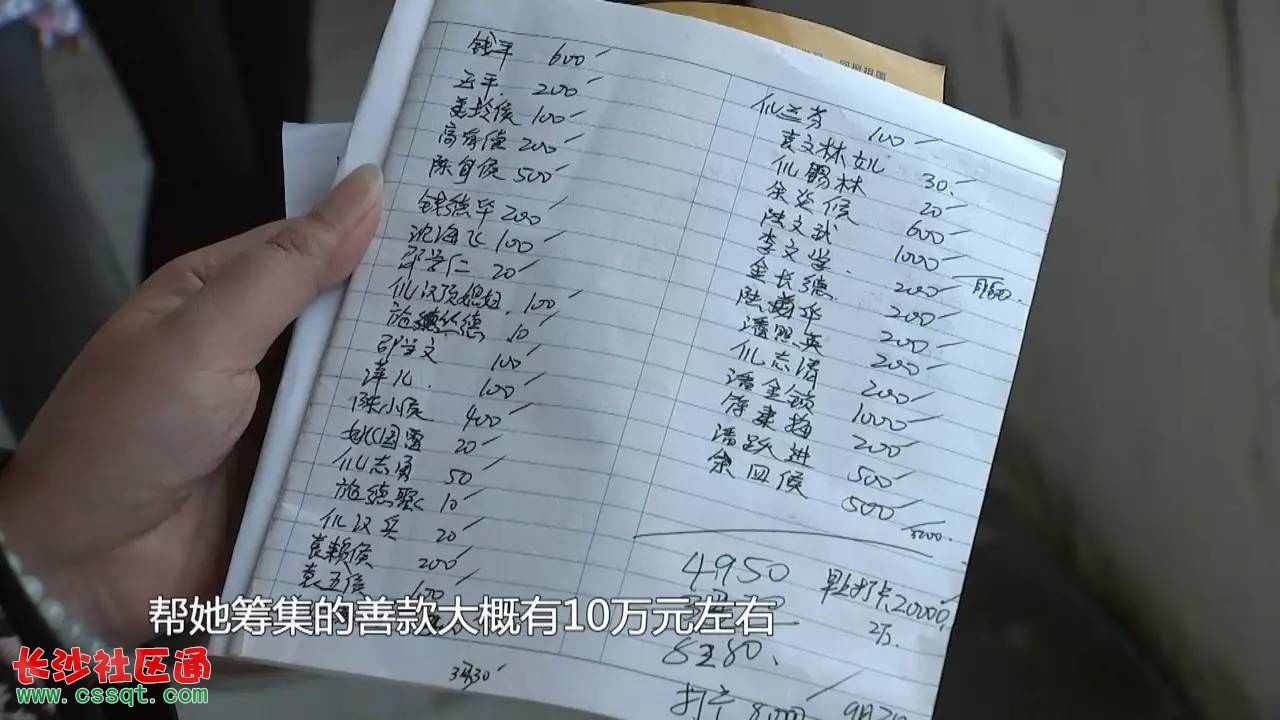 钱平 600
云平 200
100
高有侯 200
陈 侯 500
钱德华 200
沈海飞 100
邵学仁 20
仇汉 姐姐 100
施德 德 10
邵学文 100
萍儿 100
陈小侯 400
国 20
仇志勇 50
施德聚 10
仇汉兵 20
袁 侯 200
袁五侯 100
3330
仇兰芳 100
袁文林女儿 30
仇锡林 20
余 侯 600
陆文武 1000
李文学 200
金长德 200
陆 华 200
潘 英 200
仇志清 200
潘金锁 1000
建梅 200
潘跃进 500
余四侯 500
5200
4950
打卡20000
2万
8280
打 8000
9月
帮她筹集的善款大概有10万元左右
长沙社区通
www.cssqt.com